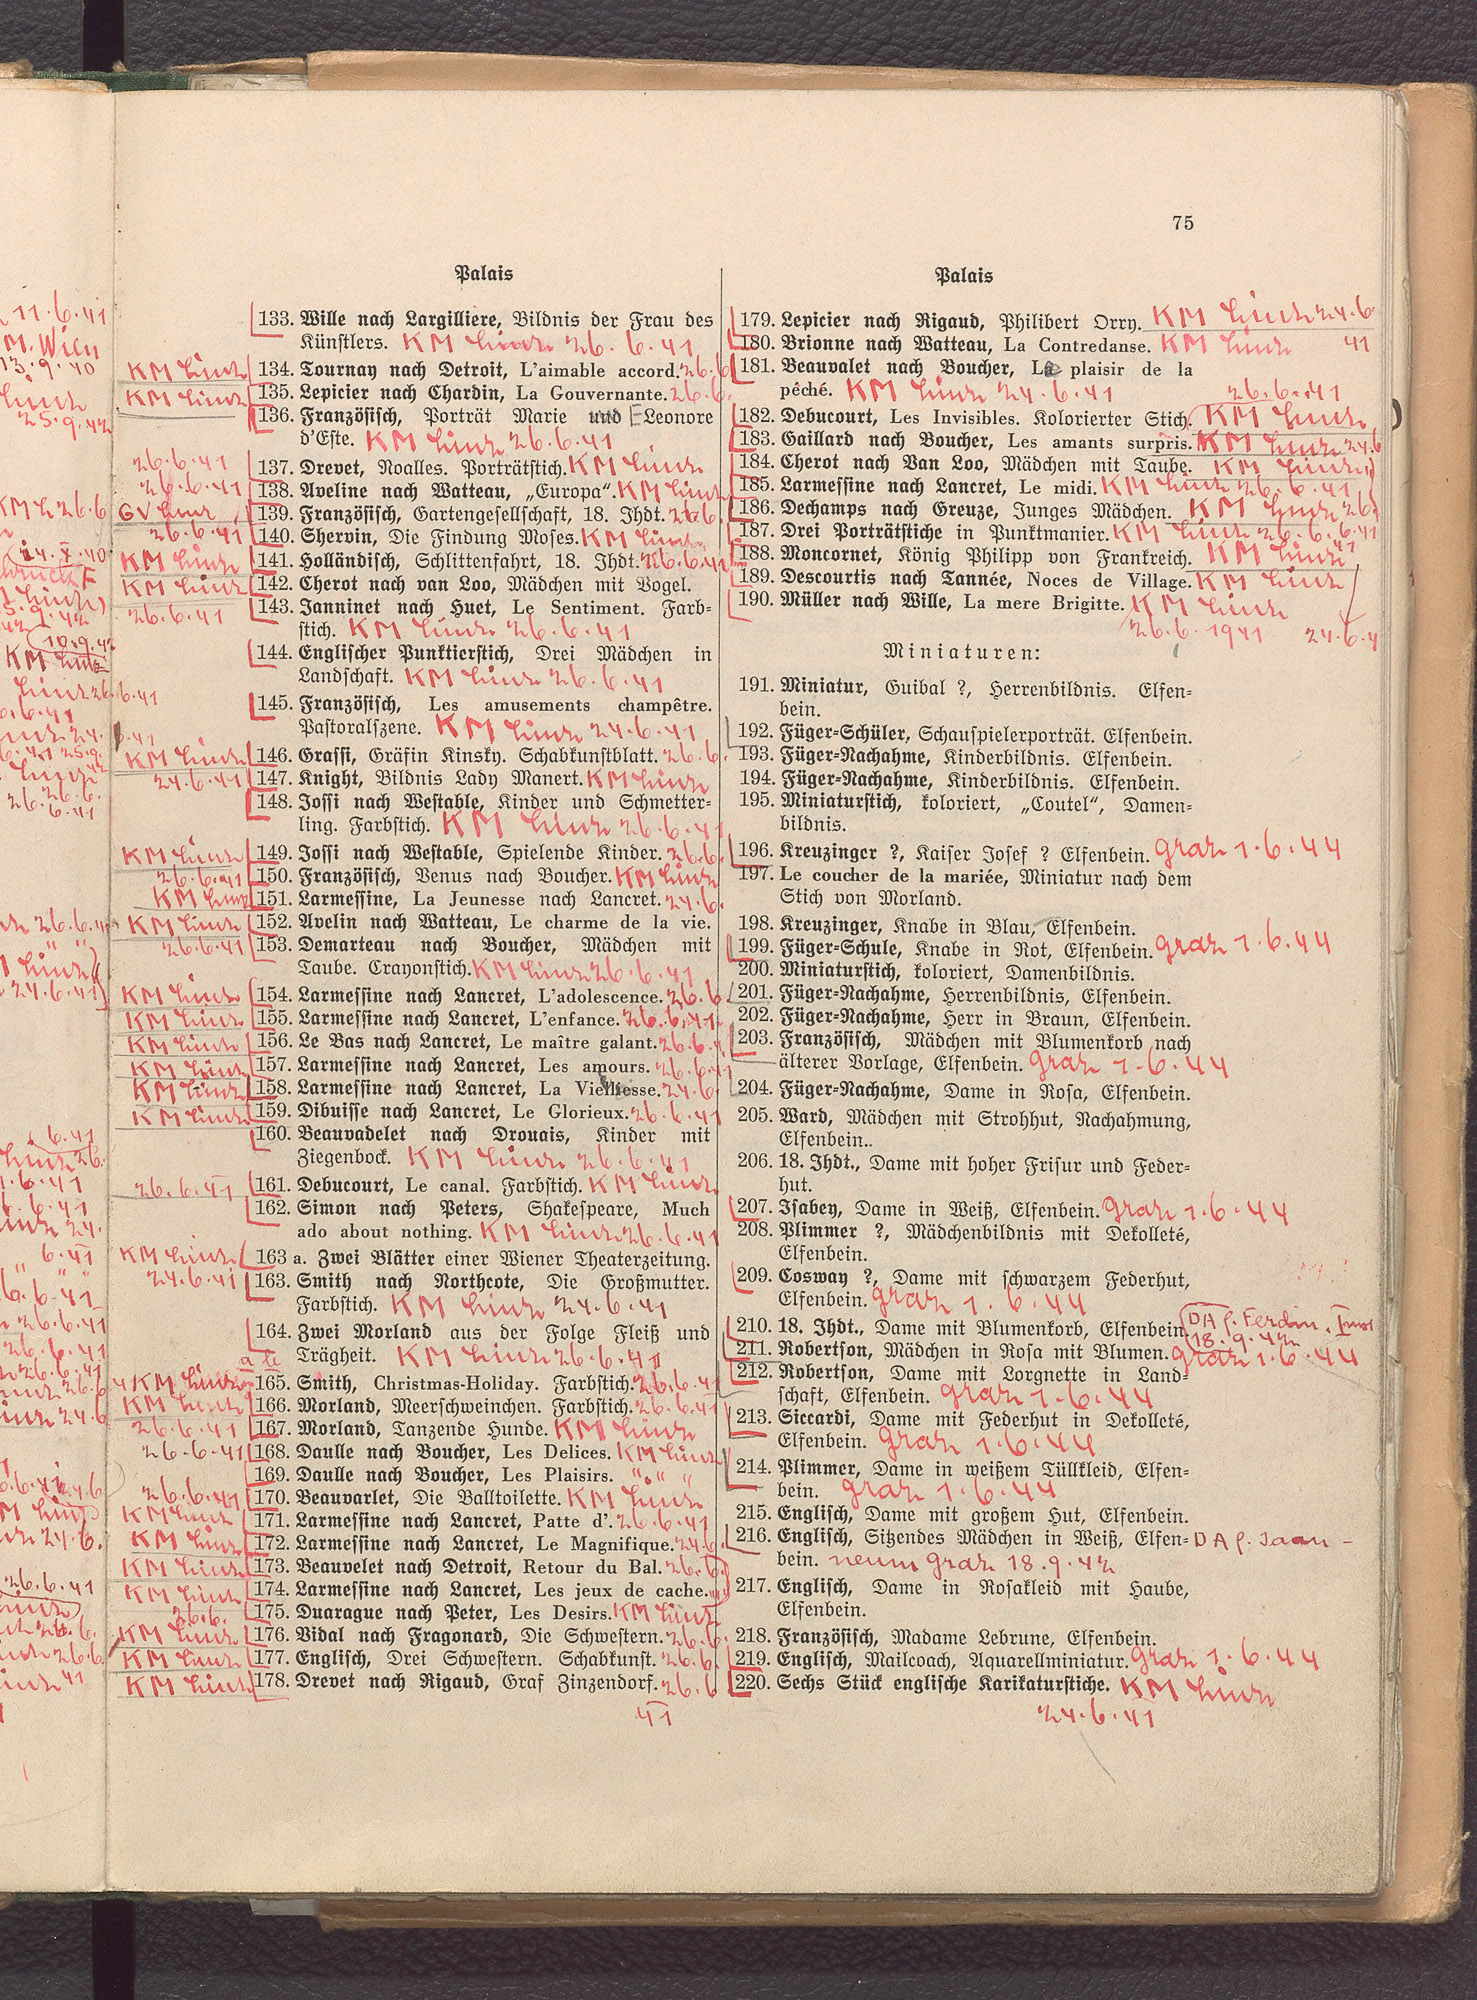 75
Palais
133. Wille nach Largilliere, Bildnis der Frau des
Künstlers. KM Linz 26.6.41
KM Linz 134. Tournay nach Detroit, L'aimable accord. 26.6
KM Linz 135. Lepicier nach Chardin, La Gouvernante. 26.6.
136. Französisch, Porträt Marie und Leonore
d'Este. KM Linz 26.6.41
26.6.41 137. Drevet, Noalles. Porträtstich. KM Linz
26.6.41 138. Aveline nach Watteau, „Europa“. KM Linz
GV Linz 139. Französisch, Gartengesellschaft, 18. Jhdt. 26.6.
26.6.41 140. Shervin, Die Findung Moses. KM Linz
KM Linz 141. Holländisch, Schlittenfahrt, 18. Jhdt. 26.6.41
KM Linz 142. Cherot nach van Loo, Mädchen mit Vogel.
26.6.41 143. Janninet nach Huet, Le Sentiment. Farb-
stich. KM Linz 26.6.41
144. Englischer Punktierstich, Drei Mädchen in
Landschaft. KM Linz 26.6.41
145. Französisch, Les amusements champêtre.
Pastoralszene. KM Linz 24.6.41
KM Linz 146. Grassi, Gräfin Kinsky. Schabkunstblatt. 26.6.
24.6.41 147. Knight, Bildnis Lady Manert. KM Linz
148. Jossi nach Westable, Kinder und Schmetter-
ling. Farbstich. KM Linz 26.6.41
KM Linz 149. Jossi nach Westable, Spielende Kinder. 26.6.
26.6.41 150. Französisch, Venus nach Boucher. KM Linz
KM Linz 151. Larmessine, La Jeunesse nach Lancret. 24.6.
KM Linz 152. Avelin nach Watteau, Le charme de la vie.
26.6.41 153. Demarteau nach Boucher, Mädchen mit
Taube. Crayonstich. KM Linz 26.6.41
KM Linz 154. Larmessine nach Lancret, L'adolescence. 26.6.
KM Linz 155. Larmessine nach Lancret, L'enfance. 26.6.41
KM Linz 156. Le Bas nach Lancret, Le maître galant. 26.6.
KM Linz 157. Larmessine nach Lancret, Les amours. 26.6.41
KM Linz 158. Larmessine nach Lancret, La Vielliesse. 24.6.
KM Linz 159. Dibuisse nach Lancret, Le Glorieux. 26.6.41
160. Beauvadelet nach Drouais, Kinder mit
Ziegenbock. KM Linz 26.6.41
26.6.41 161. Debucourt, Le canal. Farbstich. KM Linz
162. Simon nach Peters, Shakespeare, Much
ado about nothing. KM Linz 26.6.41
KM Linz 163 a. Zwei Blätter einer Wiener Theaterzeitung.
24.6.41 163. Smith nach Northcote, Die Großmutter.
Farbstich. KM Linz 24.6.41
164. Zwei Morland aus der Folge Fleiß und
Trägheit. KM Linz 26.6.41
KM Linz 165. Smith, Christmas-Holiday. Farbstich. 26.6.41
KM Linz 166. Morland, Meerschweinchen. Farbstich. 26.6.41
26.6.41 167. Morland, Tanzende Hunde. KM Linz
26.6.41 168. Daulle nach Boucher, Les Delices. KM Linz
169. Daulle nach Boucher, Les Plaisirs. " " "
26.6.41 170. Beauvarlet, Die Balltoilette. KM Linz
KM Linz 171. Larmessine nach Lancret, Patte d'. 26.6.41
KM Linz 172. Larmessine nach Lancret, Le Magnifique. 24.6.
KM Linz 173. Beauvelet nach Detroit, Retour du Bal. 26.6.
KM Linz 174. Larmessine nach Lancret, Les jeux de cache.
26.6. 175. Duarague nach Peter, Les Desirs. KM Linz
KM Linz 176. Vidal nach Fragonard, Die Schwestern. 26.6.
KM Linz 177. Englisch, Drei Schwestern. Schabkunst. 26.6.
KM Linz 178. Drevet nach Rigaud, Graf Zinzendorf. 26.6
41
Palais
179. Lepicier nach Rigaud, Philibert Orry. KM Linz 24.6
180. Brionne nach Watteau, La Contredanse. KM Linz 41
181. Beauvalet nach Boucher, Le plaisir de la
pêché. KM Linz 24.6.41 26.6.41
182. Debucourt, Les Invisibles. Kolorierter Stich. KM Linz
183. Gaillard nach Boucher, Les amants surpris. KM Linz 24.6
184. Cherot nach Van Loo, Mädchen mit Taube. KM Linz
185. Larmessine nach Lancret, Le midi. KM Linz 26.6.41
186. Dechamps nach Greuze, Junges Mädchen. KM Linz 26.
187. Drei Porträtstiche in Punktmanier. KM Linz 26.6.41
188. Moncornet, König Philipp von Frankreich. KM Linz
189. Descourtis nach Tannée, Noces de Village. KM Linz
190. Müller nach Wille, La mere Brigitte. KM Linz
26.6.1941 24.6.4
Miniaturen:
191. Miniatur, Guibal ?, Herrenbildnis. Elfen-
bein.
192. Füger-Schüler, Schauspielerporträt. Elfenbein.
193. Füger-Nachahme, Kinderbildnis. Elfenbein.
194. Füger-Nachahme, Kinderbildnis. Elfenbein.
195. Miniaturstich, koloriert, „Coutel“, Damen-
bildnis.
196. Kreuzinger ?, Kaiser Josef ? Elfenbein. Graz 1.6.44
197. Le coucher de la mariée, Miniatur nach dem
Stich von Morland.
198. Kreuzinger, Knabe in Blau, Elfenbein.
199. Füger-Schule, Knabe in Rot, Elfenbein. Graz 1.6.44
200. Miniaturstich, koloriert, Damenbildnis.
201. Füger-Nachahme, Herrenbildnis, Elfenbein.
202. Füger-Nachahme, Herr in Braun, Elfenbein.
203. Französisch, Mädchen mit Blumenkorb nach
älterer Vorlage, Elfenbein. Graz 1.6.44
204. Füger-Nachahme, Dame in Rosa, Elfenbein.
205. Ward, Mädchen mit Strohhut, Nachahmung,
Elfenbein..
206. 18. Jhdt., Dame mit hoher Frisur und Feder-
hut.
207. Isabey, Dame in Weiß, Elfenbein. Graz 1.6.44
208. Plimmer ?, Mädchenbildnis mit Dekolleté,
Elfenbein.
209. Cosway ?, Dame mit schwarzem Federhut,
Elfenbein. Graz 1.6.44
210. 18. Jhdt., Dame mit Blumenkorb, Elfenbein. DA f. Ferdin. 18.9.42
211. Robertson, Mädchen in Rosa mit Blumen. Graz 1.6.44
212. Robertson, Dame mit Lorgnette in Land-
schaft, Elfenbein. Graz 1.6.44
213. Siccardi, Dame mit Federhut in Dekolleté,
Elfenbein. Graz 1.6.44
214. Plimmer, Dame in weißem Tüllkleid, Elfen-
bein. Graz 1.6.44
215. Englisch, Dame mit großem Hut, Elfenbein.
216. Englisch, Sitzendes Mädchen in Weiß, Elfen- DA f. Joan-
bein. neum Graz 18.9.42
217. Englisch, Dame in Rosakleid mit Haube,
Elfenbein.
218. Französisch, Madame Lebrune, Elfenbein.
219. Englisch, Mailcoach, Aquarellminiatur. Graz 1.6.44
220. Sechs Stück englische Karikaturstiche. KM Linz
24.6.41